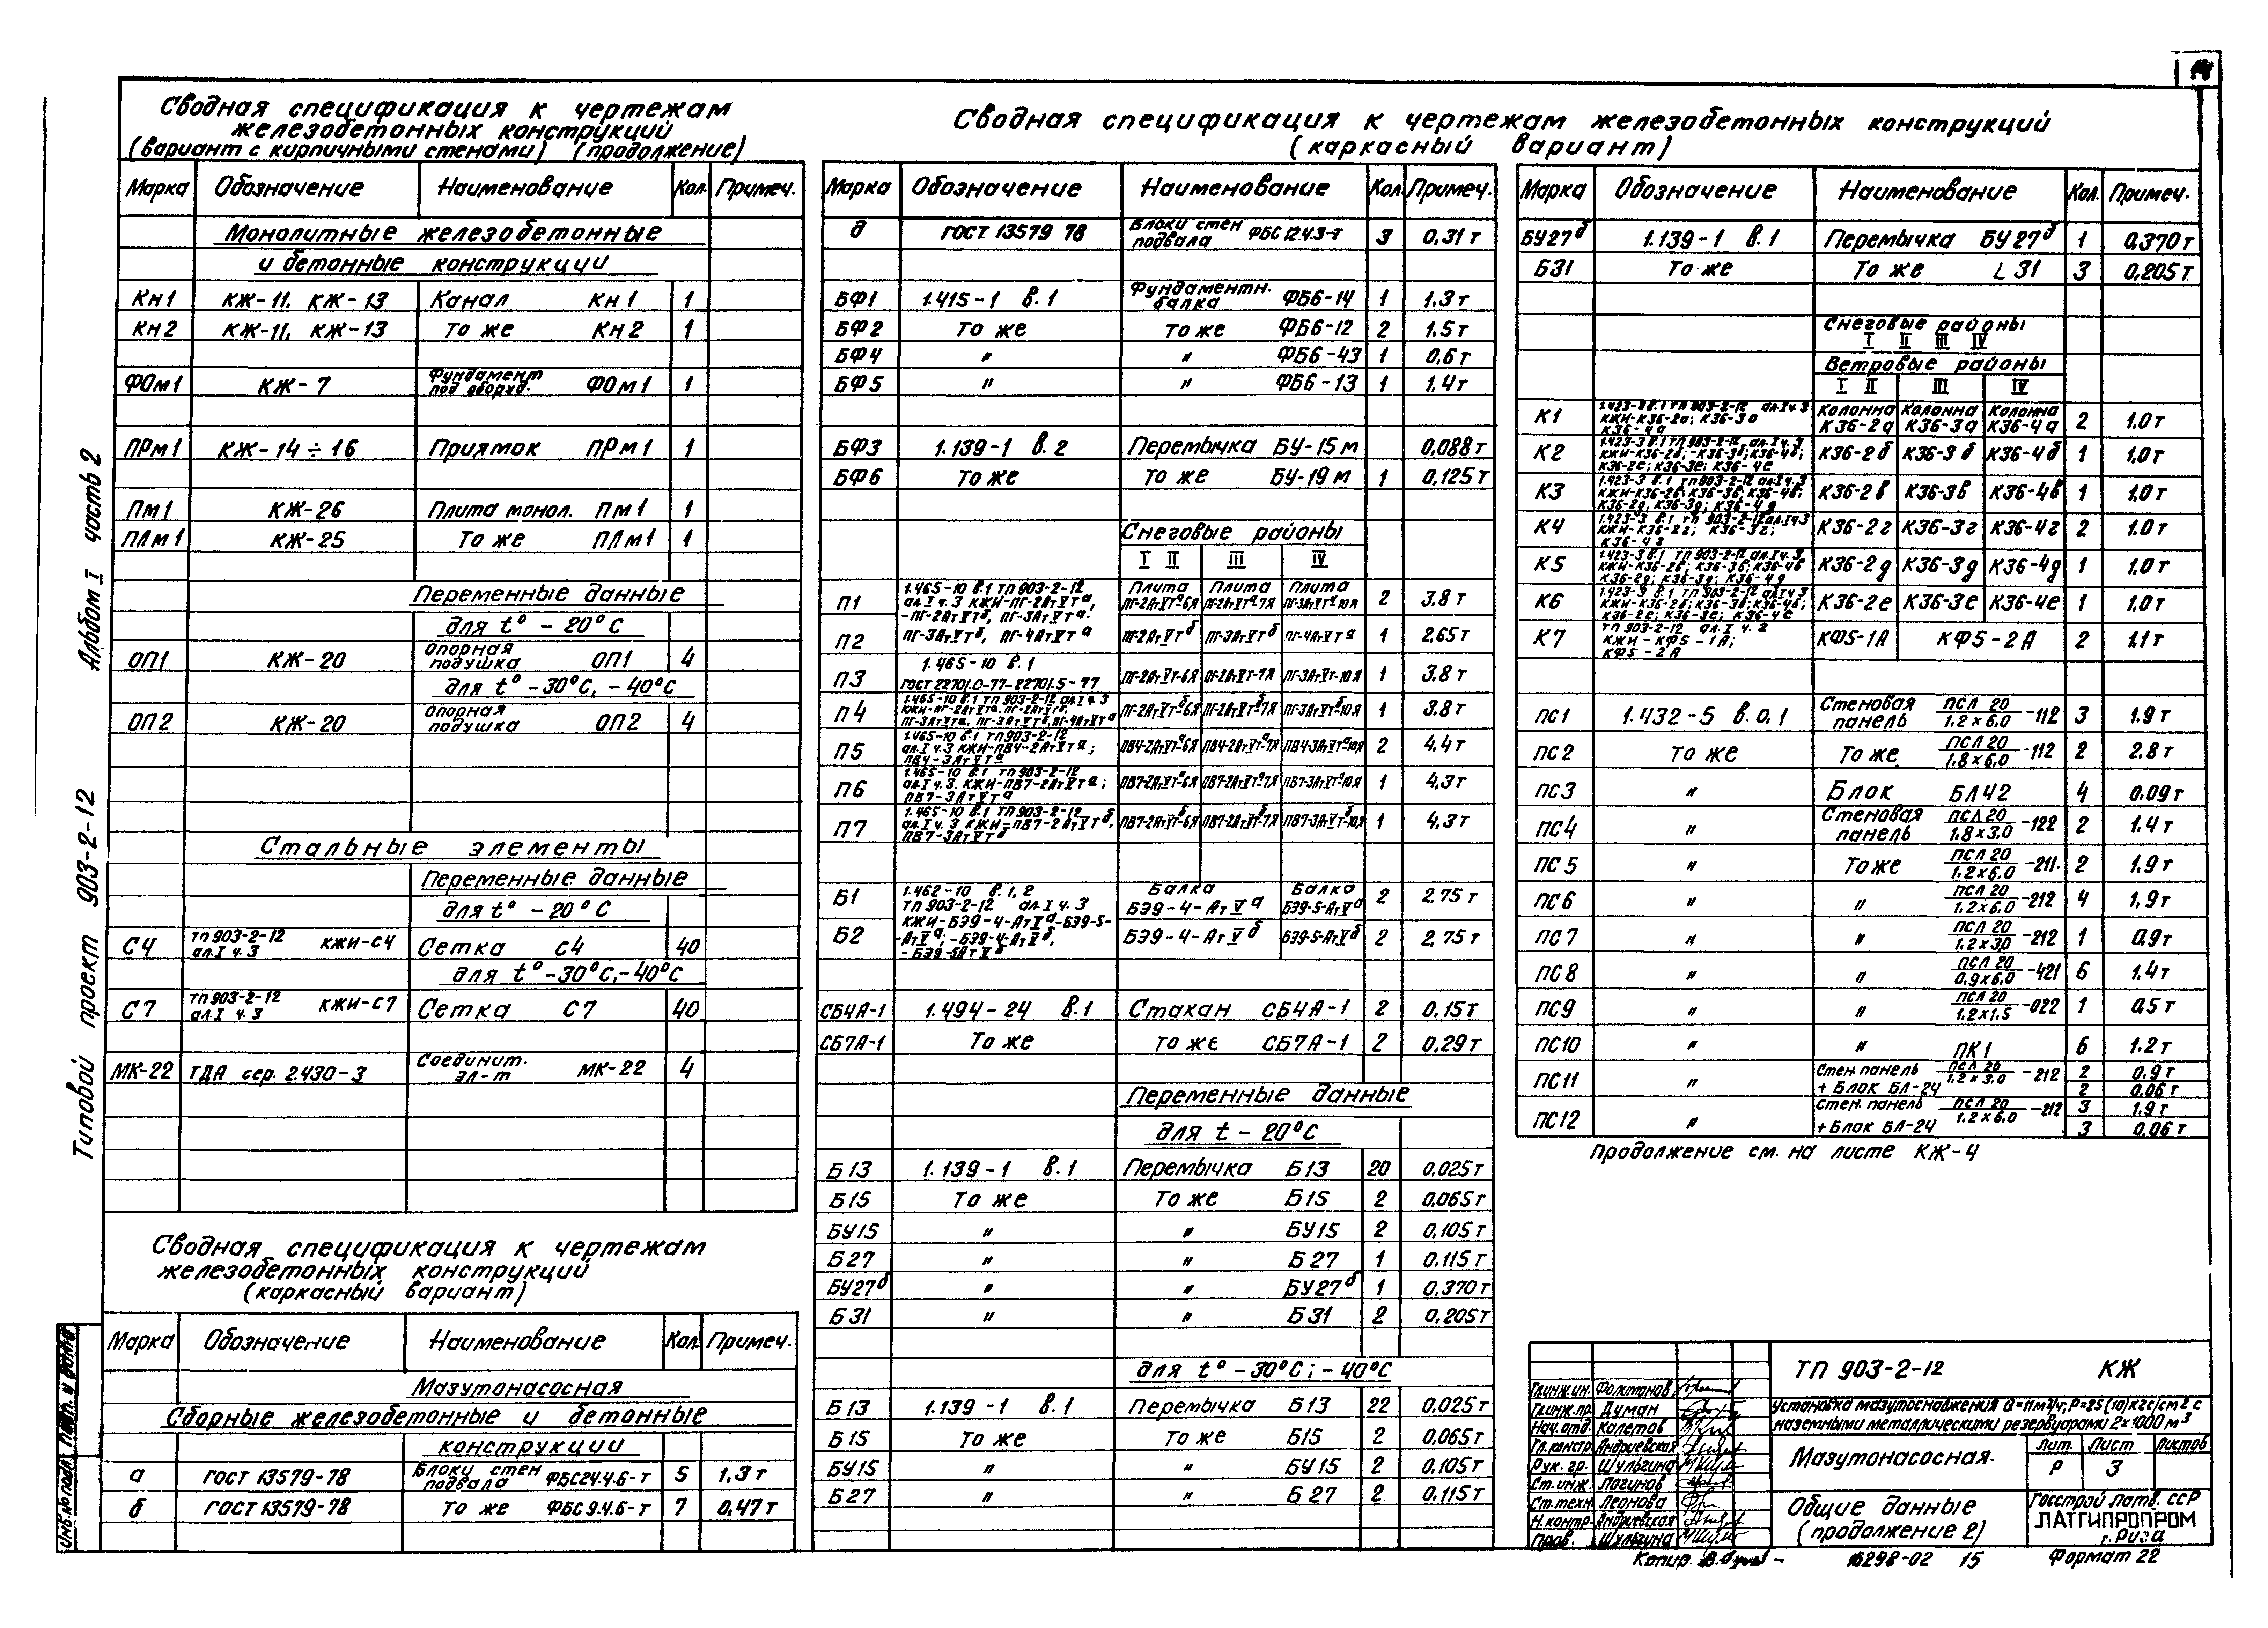 14
Сводная спецификация к чертежам
железобетонных конструкций
(вариант с кирпичными стенами) (продолжение)
Марка Обозначение Наименование Кол. Примеч.
Монолитные железобетонные
и бетонные конструкции
Кн1 КЖ-11, КЖ-13 Канал Кн1 1
Кн2 КЖ-11, КЖ-13 То же Кн2 1
ФОм1 КЖ-7 Фундамент под оборуд. ФОм1 1
ПРм1 КЖ-14÷16 Приямок ПРм1 1
Пм1 КЖ-26 Плита монол. Пм1 1
ПЛм1 КЖ-25 То же ПЛм1 1
Переменные данные
для t° -20°С
ОП1 КЖ-20 Опорная подушка ОП1 4
для t° -30°С, -40°С
ОП2 КЖ-20 Опорная подушка ОП2 4
Стальные элементы
Переменные данные
для t° -20°С
С4 ТП 903-2-12 ал.I ч.3 КЖИ-С4 Сетка С4 40
для t° -30°С, -40°С
С7 ТП 903-2-12 ал.I ч.3 КЖИ-С7 Сетка С7 40
МК-22 ТДА сер. 2.430-3 Соединит. эл-т МК-22 4
Сводная спецификация к чертежам
железобетонных конструкций
(каркасный вариант)
Марка Обозначение Наименование Кол. Примеч.
Мазутонасосная
Сборные железобетонные и бетонные
конструкции
а ГОСТ 13579-78 Блоки стен подвала ФБС24.4.6-т 5 1,3 т
б ГОСТ 13579-78 То же ФБС9.4.6-т 7 0,47 т
Сводная спецификация к чертежам железобетонных конструкций
(каркасный вариант)
Марка Обозначение Наименование Кол. Примеч.
д ГОСТ 13579 78 Блоки стен подвала ФБС12.4.3-т 3 0,31 т
БФ1 1.415-1 в.1 Фундаментн. балка ФБ6-14 1 1,3 т
БФ2 То же То же ФБ6-12 2 1,5 т
БФ4 " " ФБ6-43 1 0,6 т
БФ5 " " ФБ6-13 1 1,4 т
БФ3 1.139-1 в.2 Перемычка БУ-15м 0,088 т
БФ6 То же То же БУ-19м 1 0,125 т
Снеговые районы
I II III IV
П1 1.465-10 в.1 ТП 903-2-12 ал.I ч.3 КЖИ-ПГ-2АтVта, -ПГ-2АтVтб, ПГ-3АтVта. Плита ПГ-2АтVта-6Я Плита ПГ-2АтVта-7Я Плита ПГ-3АтVта-10Я 2 3.8 т
П2 ПГ-3АтVтб, ПГ-4АтVта ПГ-2АтVтб ПГ-3АтVтб ПГ-4АтVта 1 2.65 т
П3 1.465-10 в.1 ГОСТ 22701.0-77-22701.5-77 ПГ-2АтVт-6Я ПГ-2АтVт-7Я ПГ-3АтVт-10Я 1 3.8 т
П4 1.465-10 в.1 ТП 903-2-12 ал.I ч.3 КЖИ-ПГ-2АтVта, ПГ-2АтVтб, ПГ-3АтVта, ПГ-3АтVтб, ПГ-4АтVта ПГ-2АтVтб-6Я ПГ-2АтVтб-7Я ПГ-3АтVтб-10Я 1 3.8 т
П5 1.465-10 в.1 ТП 903-2-12 ал.I ч.3 КЖИ-ПВ4-2АтVта; ПВ4-3АтVта ПВ4-2АтVта-6Я ПВ4-2АтVта-7Я ПВ4-3АтVта-10Я 2 4,4 т
П6 1.465-10 в.1 ТП 903-2-12 ал.I ч.3. КЖИ-ПВ7-2АтVта; ПВ7-3АтVта ПВ7-2АтVта-6Я ПВ7-2АтVта-7Я ПВ7-3АтVта-10Я 1 4,3 т
П7 1.465-10 в.1 ТП 903-2-12 ал.I ч.3 КЖИ-ПВ7-2АтVтб, ПВ7-3АтVтб ПВ7-2АтVтб-6Я ПВ7-2АтVтб-7Я ПВ7-3АтVтб-10Я 1 4,3 т
Б1 1.462-10 в.1,2 ТП 903-2-12 ал.I ч.3 Балка БЭ9-4-АтVа Балка БЭ9-5-АтVа 2 2,75 т
Б2 КЖИ-БЭ9-4-АтVа-БЭ9-5-АтVа, -БЭ9-4-АтVб, -БЭ9-5АтVб БЭ9-4-АтVб БЭ9-5-АтVб 2 2,75 т
СБ4А-1 1.494-24 в.1 Стакан СБ4А-1 2 0,15т
СБ7А-1 То же То же СБ7А-1 2 0,29 т
Переменные данные
для t -20°С
Б13 1.139-1 в.1 Перемычка Б13 20 0,025т
Б15 То же То же Б15 2 0,065т
БУ15 " " БУ15 2 0,105т
Б27 " " Б27 1 0.115т
БУ27б " " БУ27б 1 0,370т
Б31 " " Б31 2 0,205т
для t° -30°С; -40°С
Б13 1.139-1 в.1 Перемычка Б13 22 0.025т
Б15 То же То же Б15 2 0.065т
БУ15 " " БУ15 2 0,105т
Б27 " " Б27 2 0.115т
Марка Обозначение Наименование Кол. Примеч.
БУ27б 1.139-1 в.1 Перемычка БУ27б 1 0,370 т
Б31 То же То же L 31 3 0,205 т
Снеговые районы
I II III IV
Ветровые районы
I II III IV
К1 1.423-3 в.1 ТП 903-2-12 ал.I ч.3 КЖИ-К36-2а; К36-3а К36-4а Колонна К36-2а Колонна К36-3а Колонна К36-4а 2 1.0 т
К2 1.423-3 в.1 ТП 903-2-12 ал.I ч.3 КЖИ-К36-2б; -К36-3б; К36-4б; К36-2е; К36-3е; К36-4е К36-2б К36-3б К36-4б 1 1.0 т
К3 1.423-3 в.1 ТП 903-2-12 ал.I ч.3 КЖИ-К36-2в; К36-3в; К36-4в; К36-2д, К36-3д; К36-4д К36-2в К36-3в К36-4в 1 1,0 т
К4 1.423-3 в.1 ТП 903-2-12 ал.I ч.3 КЖИ-К36-2г; К36-3г; К36-4г К36-2г К36-3г К36-4г 2 1.0 т
К5 1.423-3 в.1 ТП 903-2-12 ал.I ч.3, КЖИ-К36-2в; К36-3в; К36-4в К36-2д; К36-3д; К36-4д К36-2д К36-3д К36-4д 1 1,0 т
К6 1.423-3 в.1 ТП 903-2-12 ал.I ч.3 КЖИ-К36-2б; К36-3б; К36-4б; К36-2е; К36-3е; К36-4е К36-2е К36-3е К36-4е 1 1.0 т
К7 ТП 903-2-12 ал.I ч. КЖИ-КФ5-1А; КФ5-2А КФ5-1А КФ5-2А 2 1.1 т
ПС1 1.432-5 в.0,1 Стеновая панель ПСЛ 20/1.2×6.0-112 3 1.9 т
ПС2 То же То же ПСЛ 20/1.8×6.0-112 2 2.8 т
ПС3 " Блок БЛ42 4 0.09 т
ПС4 " Стеновая панель ПСЛ 20/1.8×3.0-122 2 1.4 т
ПС5 " То же ПСЛ 20/1.2×6.0-211. 2 1.9 т
ПС6 " " ПСЛ 20/1.2×6.0-212 4 1,9 т
ПС7 " " ПСЛ 20/1.2×3.0-212 1 0.9 т
ПС8 " " ПСЛ 20/0.9×6.0-421 6 1.4 т
ПС9 " " ПСЛ 20/1.2×1.5-022 1 0,5 т
ПС10 " " ПК1 6 1.2 т
ПС11 " Стен. панель ПСЛ 20/1.2×3.0-212 2 0.9 т
+ Блок БЛ-24 2 0.06 т
ПС12 " Стен. панель ПСЛ 20/1.2×6.0-212 3 1.9 т
+ Блок БЛ-24 3 0,06 т
Продолжение см. на листе КЖ-4
Типовой проект 903-2-12 Альбом I часть 2
Инв.№ подл. Подп. и дата
ТП 903-2-12 КЖ
Установка мазутоснабжения Q=11м³/ч; Р=25(10)кгс/см2 с
наземными металлическими резервуарами 2×1000 м³
Мазутонасосная.
Лит. Лист Листов
Р 3
Общие данные
(продолжение 2)
Госстрой Латв. ССР
ЛАТГИПРОПРОМ
г. Рига
Гл.инж.ин.
Гл.инж.пр. Думан
Нач.отд. Колетов
Гл.констр. Андриевская
Рук. гр. Шульгина
Ст.инж. Логинов
Ст.техн. Леонова
Н.контр. Андриевская
Пров. Шульгина
Копир.
16298-02 15
Формат 22